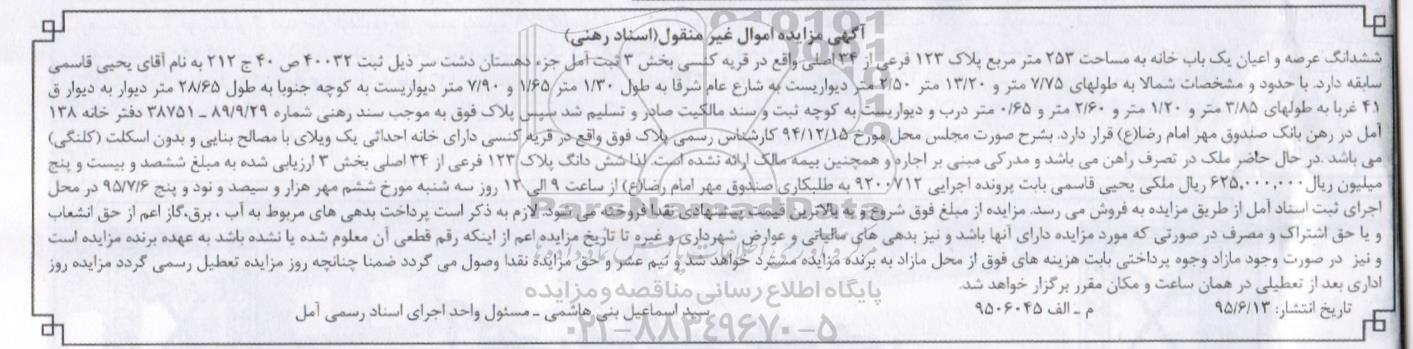 آگهی مزایده اموال غیر منقول(اسناد رهنی)
ششدانگ عرصه و اعیان یک باب خانه به مساحت ۲۵۳ متر مربع پلاک ۱۲۳ فرعی از ۳۴ اصلی واقع در قریه کنسی بخش ۳ ثبت آمل جزء دهستان دشت سر ذیل ثبت ۴۰۰۳۲ ص ۴۰ ج ۲۱۲ به نام آقای یحیی قاسمی
سابقه دارد. با حدود و مشخصات شمالا به طولهای ۷/۷۵ متر و ۱۳/۲۰ متر ۲/۵۰ متر دیواریست به شارع عام شرقا به طول ۱/۳۰ متر ۱/۶۵ و ۷/۹۰ متر دیواریست به کوچه جنوبا به طول ۲۸/۶۵ متر دیوار به دیوار ق
۴۱ غربا به طولهای ۳/۸۵ متر و ۱/۲۰ متر و ۲/۶۰ متر و ۰/۶۵ متر درب و دیواریست به کوچه ثبت و سند مالکیت صادر و تسلیم شد سپس پلاک فوق به موجب سند رهنی شماره ۳۸۷۵۱ ـ ۸۹/۹/۲۹ دفتر خانه ۱۳۸
آمل در رهن بانک صندوق مهر امام رضا(ع) قرار دارد. بشرح صورت مجلس محل مورخ ۹۴/۱۲/۱۵ کارشناس رسمی پلاک فوق واقع در قریه کنسی دارای خانه احداثی یک ویلای با مصالح بنایی و بدون اسکلت (کلنگی)
می باشد .در حال حاضر ملک در تصرف راهن می باشد و مدرکی مبنی بر اجاره و همچنین بیمه مالک ارائه نشده است. لذا شش دانگ پلاک ۱۲۳ فرعی از ۳۴ اصلی بخش ۳ ارزیابی شده به مبلغ ششصد و بیست و پنج
میلیون ریال ۶۲۵,۰۰۰,۰۰۰ ریال ملکی یحیی قاسمی بابت پرونده اجرایی ۹۲۰۰۷۱۲ به طلبکاری صندوق مهر امام رضا(ع) از ساعت ۹ الی ۱۲ روز سه شنبه مورخ ششم مهر هزار و سیصد و نود و پنج ۹۵/۷/۶ در محل
اجرای ثبت اسناد آمل از طریق مزایده به فروش می رسد. مزایده از مبلغ فوق شروع و به بالاترین قیمت پیشنهادی نقدا فروخته می شود. لازم به ذکر است پرداخت بدهی های مربوط به آب ، برق،گاز اعم از حق انشعاب
و یا حق اشتراک و مصرف در صورتی که مورد مزایده دارای آنها باشد و نیز بدهی های مالیاتی و عوارض شهرداری و غیره تا تاریخ مزایده اعم از اینکه رقم قطعی آن معلوم شده یا نشده باشد به عهده برنده مزایده است
و نیز در صورت وجود مازاد وجوه پرداختی بابت هزینه های فوق از محل مازاد به برنده مزایده مسترد خواهد شد و نیم عشر و حق مزایده نقدا وصول می گردد ضمنا چنانچه روز مزایده تعطیل رسمی گردد مزایده روز
اداری بعد از تعطیلی در همان ساعت و مکان مقرر برگزار خواهد شد.
تاریخ انتشار: ۹۵/۶/۱۳ م ـ الف ۹۵۰۶۰۴۵ سید اسماعیل بنی هاشمی ـ مسئول واحد اجرای اسناد رسمی آمل
ParsNamadData
پایگاه اطلاع رسانی مناقصه و مزایده
۰۲۱-۸۸۳۴۹۶۷۰-۵